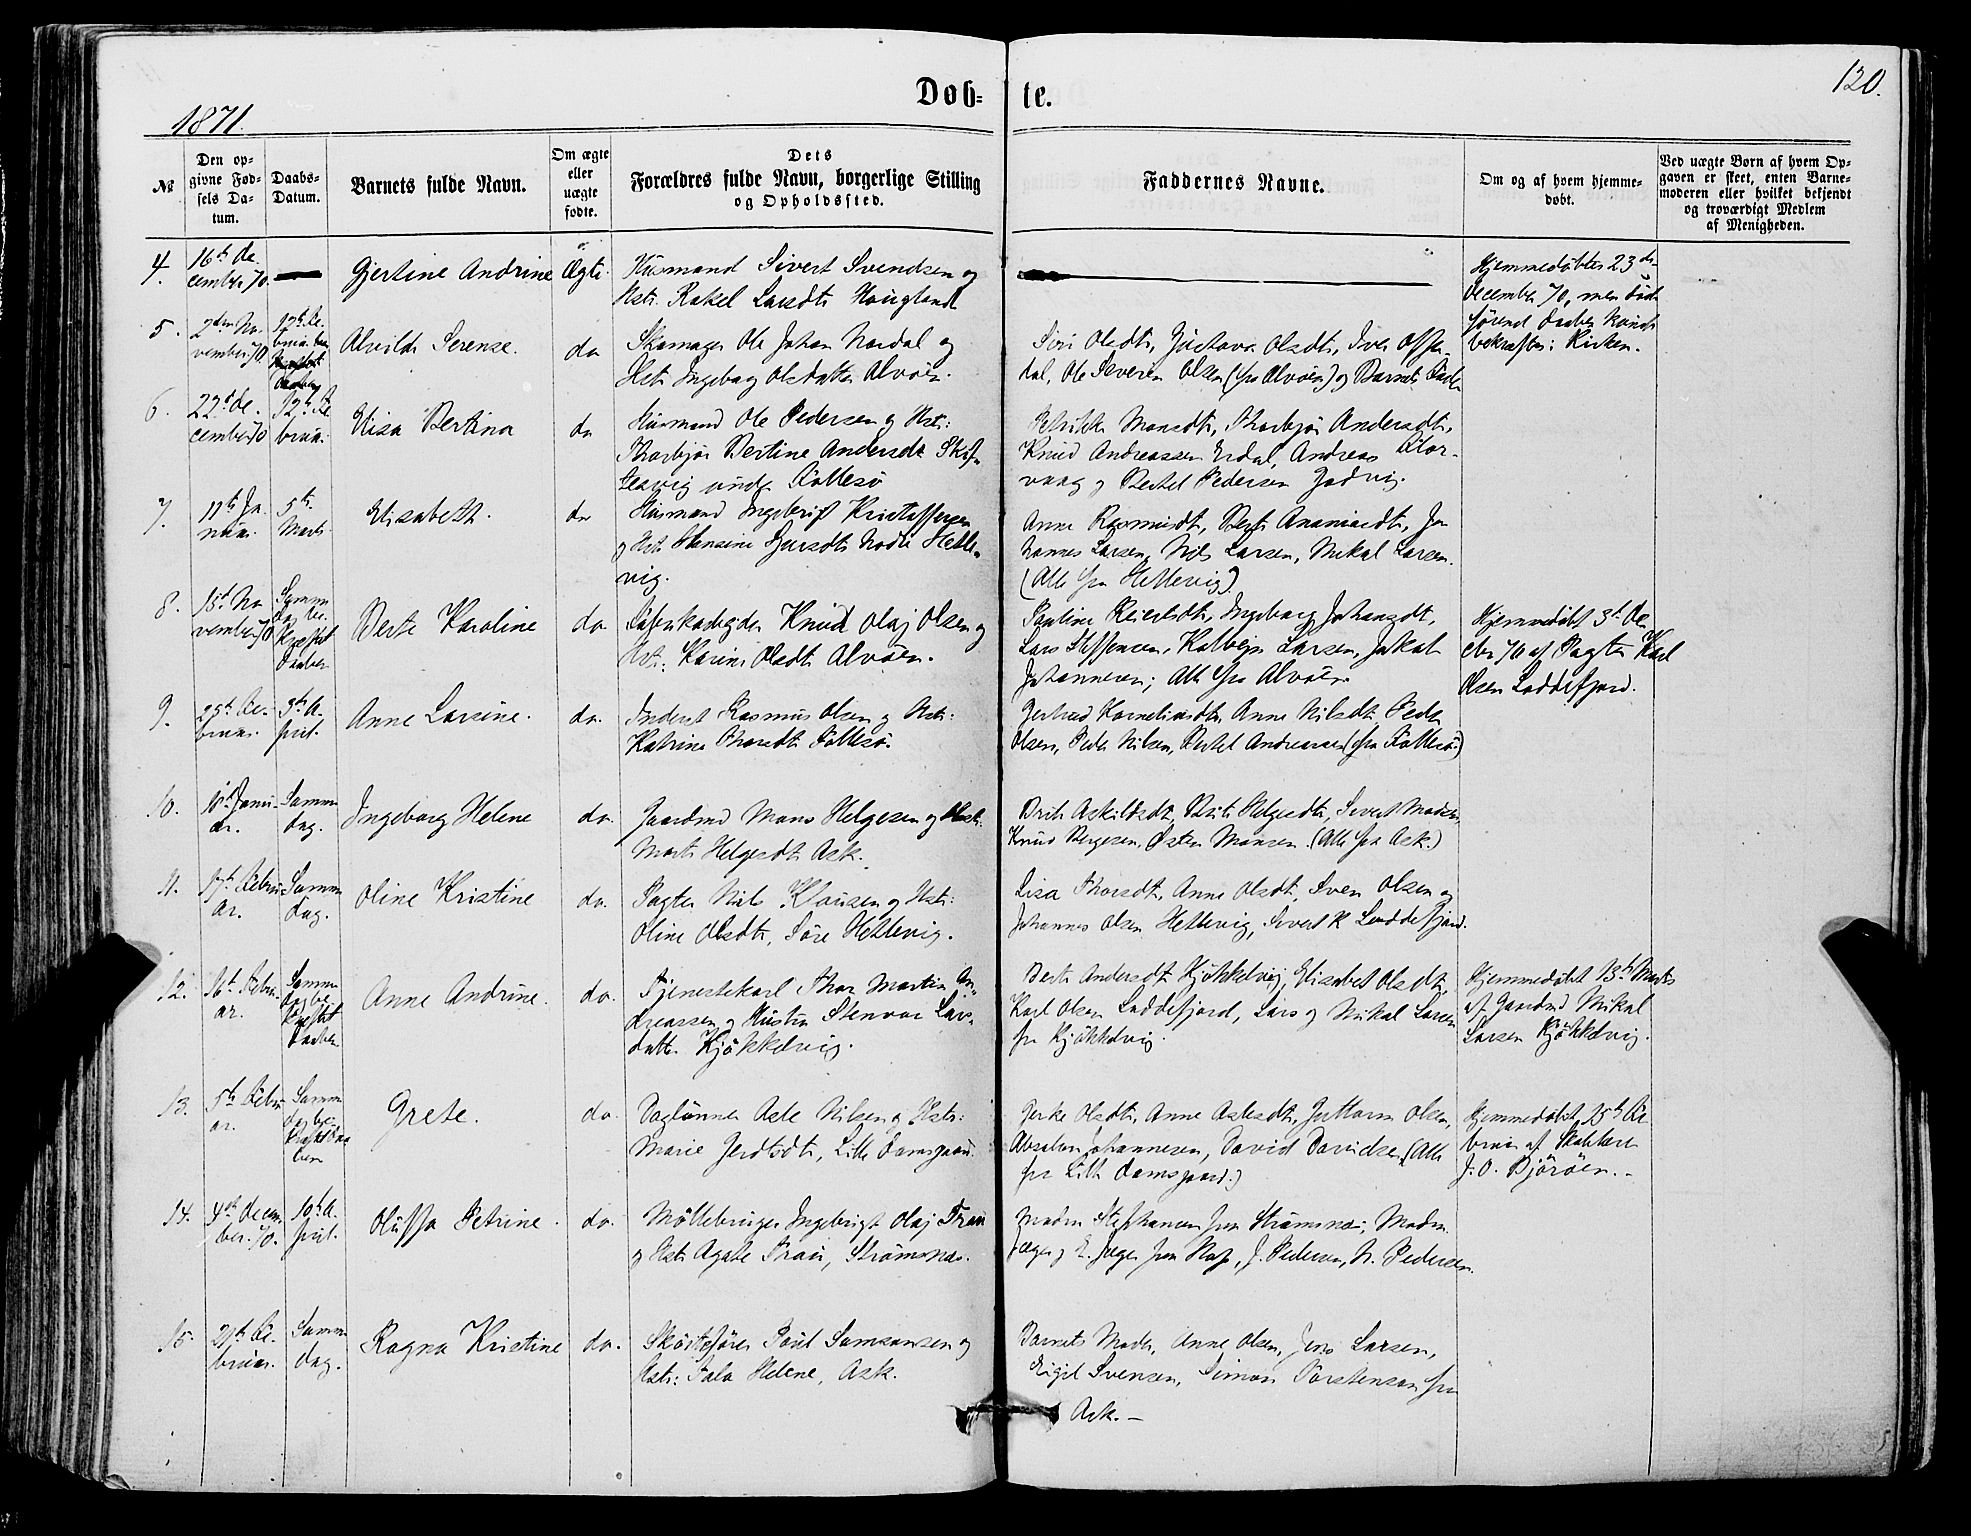 Døb= te.
120.
1871.
№
Den op=
givne Fød=
sels Da=
tum.
Daabs=
Datum.
Barnets fulde Navn.
Om ægte
eller
uægte
fødte.
Dets
Forældres fulde Navn, borgerlige Stilling
og Opholdssted.
Faddernes Navne.
Om og af hvem hjemme=
døbt.
Ved uægte Børn af hvem Op=
gaven er skeet, enten Barne=
moderen eller hvilket bekjendt
og troværdigt Medlem
af Menigheden.
4.
16de De
cember 70.
Gjertine Andrine
Ægte
Huusmand Sivert Svendsen og
Hstr. Rakel Larsdtr Hougland
Hjemmedøbtes 23de
December 70, men døde
førend Daaben kunde
bekræftes i Kirken.
5.
2den No-
vember 70
12te Fe-
Alvilde Serense.
do
Skomager Ole Johan Nordal og
Hstr Ingeborg Olsdatter Alvøen.
Siri Olsdtr, Gustava Olsdtr, Iver
dal, Ole Severin Olsen (fra Alvøen) og Barnets Fader
6.
22de De-
cember 70
12te Fe
bruar.
Elisa Bertina
do
Huusmand Ole Pedersen og Hstr:
Thorbjør Bertine Andersdtr
under Follesø
Monsdtr, Thorbjør Andersdtr,
Knud Andreassen Erdal, Andreas Stor-
vaag og Bertel Pedersen
7.
Ja-
nuar.
5te
Marts
Elisabeth.
do
Huusmand Ingebrigt Kristoffersen
og Hstr Hansine Nodre Hetle-
vig.
Anne Rasmusdtr, Berte Ananiasdtr, Jo
hannes Larsen, Nils Larsen, Mikal Larsen.
(Alle fra Hetlevig).
8.
No
vember 70
Samme
Dag be-
kræftet
Daaben
Berte Karoline
do
Knud Olaj Olsen og
Hstr: Karine Olsdtr Alvøen.
Paulina Ingeborg Johansdtr,
Lars Steffensen, Larsen, Jakob
Johannesen; Alle fra Alvøen
Hjemmedøbt 3de De
cbr 70 af Pagter Karl
Olsen Loddefjord.
9.
25te Fe-
bruar.
A-
pril.
Anne Larsine.
do.
Inderst Rasmus Olsen og Hstr:
Katrine Thorsdtr Follesø.
Gertrud Korneliusdtr Anne Nilsdtr, Peder
Olsen, Peder Nilsen, Bertel Andreassen (fra Follesø)
10.
Janu-
ar.
Samme
Dag.
Ingeborg Helene
do.
Gaardmd Mons Helgesen og Hstr:
Helgesdtr Ask.
Brite Askildsdtr, Helgesdtr, Sivert Madsen,
Knud Børgesen, Østen Monsen. (Alle fra Ask.)
11.
17de Febru-
ar.
Samme
Dag.
Oline Kristine
do.
Pagter Nils Klausen og Hstr:
Oline Olsdtr, Søre Hetlevig.
Lisa Thorsdtr, Anne Olsdtr, Sven Olsen og
Johannes Olsen Hetlevig, Sivert K Loddefjord.
12.
16de Febru-
ar.
Samme
Dag be-
kræftet
Daaben
Anne Andrine.
do.
Tjenestekarl Thor Martin An-
dreassen og Hustru Stenvor Lars-
datter Kjøkkelvig.
Berte Andersdtr Kjøkkelvig, Elisabet Olsdtr,
Karl Olsen Loddefjord, Lars og Mikal Larsen
fra Kjøkkelvig.
Hjemmedøbt 13de Marts
af Gaardmd Mikal
Larsen Kjøkkelvig.
13.
5te Febru-
ar.
Samme
Dag be-
kræft Daa
ben
Grete.
do.
Daglønner Asle Nilsen og Hstr:
Marie Lille Damsgaard.
Gerke Olsdtr, Anne Aslesdtr, Guttorm Olsen,
Absalon Johannesen, David Davidsen (Alle
fra Lille Damsgaard.)
Hjemmedøbt 25de Fe
bruar af Skolelærer
J. O. Bjørøen.-
14.
4de Decem
ber. 70.
10de A-
pril.
Oluffa Petrine.
do.
Møllebruger Ingebrigt Olaj
og Hstr Agate Strømsnæs.
Madm Stephansen fra Strømsnæs, Madm.
Jæger og E. Jæger fra J. Pedersen, N. Pedersen.
15.
21de Fe-
bruar.
Samme
Dag.
Ragna Kristine
do.
Skøitefører Poul Samsonsen og
Hstr: Helene, Ask.
Barnets Moder, Anne Olsen, Jens Larsen,
Eigil Svensen, Simon Torstensen fra
Ask.-